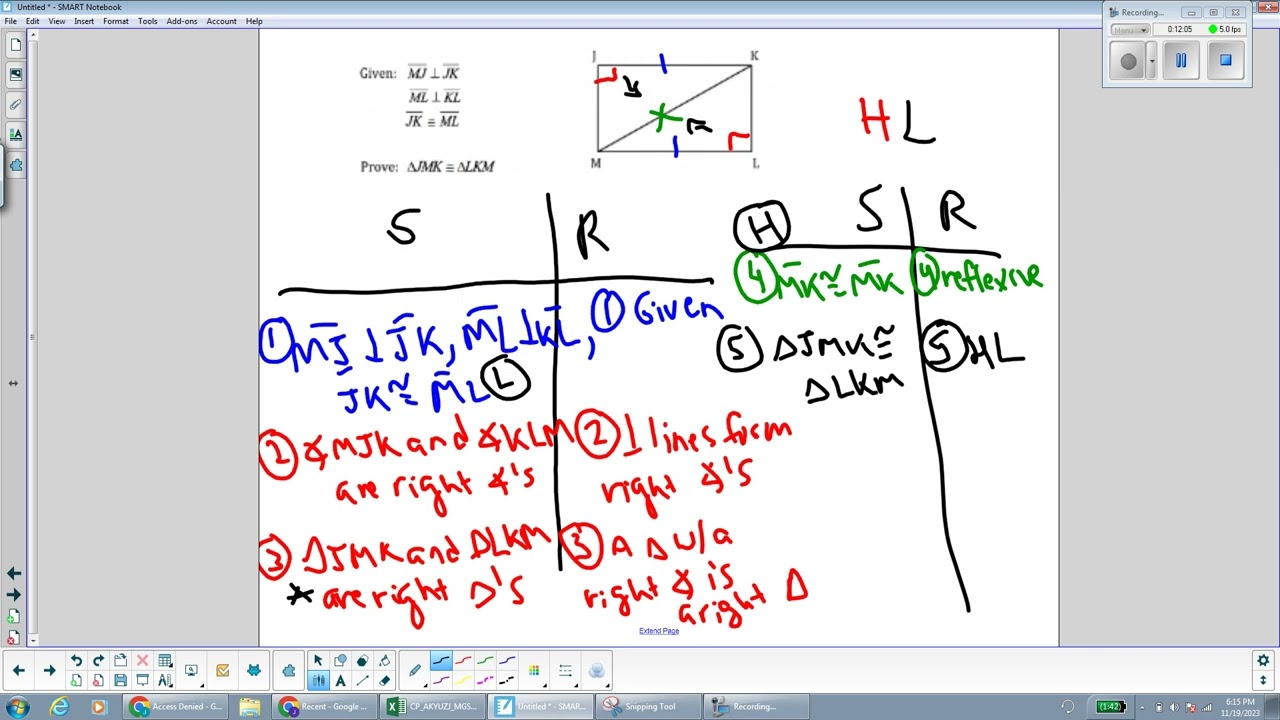 Untitled * - SMART Notebook
File Edit View Insert Format Tools Add-ons Account Help
Recording...
Menu
0:12:05
5.0 fps
Given: MJ ⊥ JK
ML ⊥ KL
JK ≅ ML
Prove: ΔJMK ≅ ΔLKM
J K
M L
HL
S R
① MJ ⊥ JK, ML ⊥ KL, ① Given
JK ≅ ML Ⓛ
② ∡MJK and ∡KLM ② ⊥ lines form
are right ∡'s right ∡'s
③ ΔJMK and ΔLKM ③ A Δ w/a
* are right Δ's right ∡ is
a right Δ
Ⓗ S R
④ MK ≅ MK ④ reflexive
⑤ ΔJMK ≅ ⑤ HL
ΔLKM
Extend Page
Access Denied - G...
Recent - Google ...
CP_AKYUZJ_MGS...
Untitled * - SMAR...
Snipping Tool
Recording...
(1:42)
6:15 PM
11/19/2023